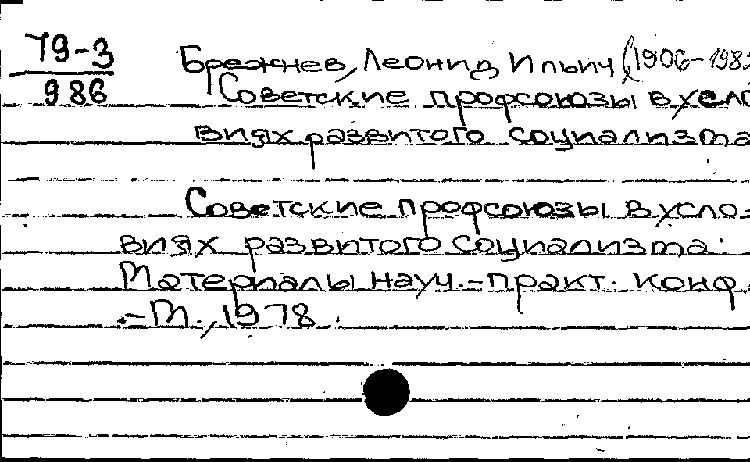 79-3
986
Брежнев, Леонид Ильич (1906-198
Советские профсоюзы в усло
виях развитого социализма
Советские профсоюзы в усло-
виях развитого социализма:
Материалы науч.-практ. конф.
-М., 1978.